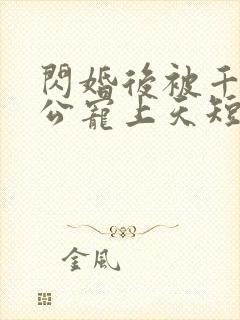 閃婚後被千
公寵上天短
金風